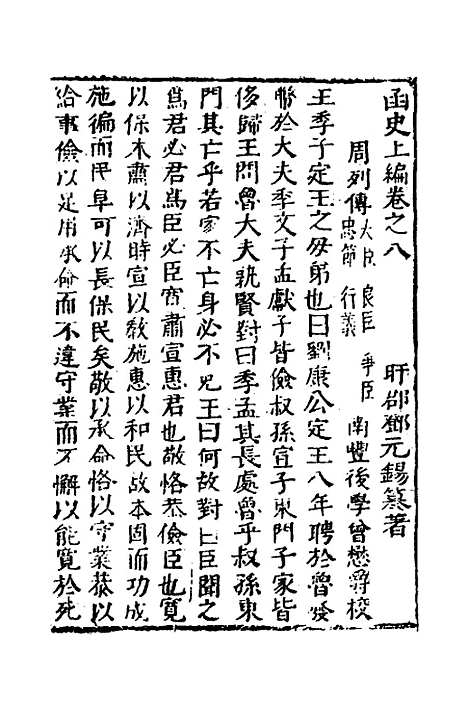 函史上編卷之八
盱郡鄧元錫纂著
周列傳 大臣 良臣 爭臣 忠節 行義 南豐後學曾懋爵校
王季子定王之母弟也曰劉康公定王八年聘於魯發
幣於大夫季文子孟獻子皆儉叔孫宣子東門子家皆
侈歸王問魯大夫孰賢對曰季孟其長處魯乎叔孫東
門其亡乎若家不亡身必不免王曰何故對曰臣聞之
爲君必君爲臣必臣寬肅宣惠君也敬恪恭儉臣也寬
以保本肅以濟時宣以敎施惠以和民故本固而功成
施徧而民阜可以長保民矣敬以承命恪以守業恭以
給事儉以足用承命而不違守業而不懈以能寬於死